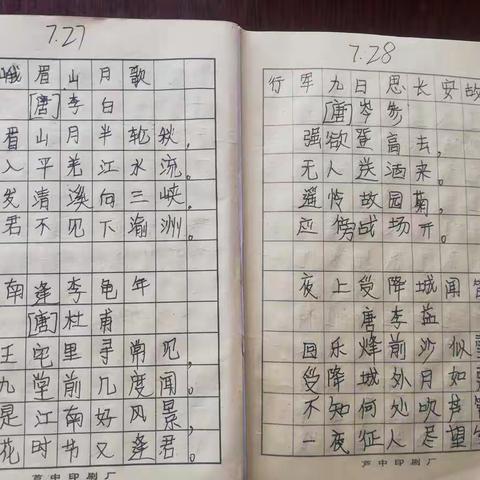 7.27
峨眉山月歌
[唐]李白
眉山月半轮秋,
入平羌江水流。
发清溪向三峡,
君不见下渝洲。
南逢李龟年
[唐]杜甫
王宅里寻常见,
九堂前几度闻。
是江南好风景,
花时节又逢君。
7.28
行军九日思长安故
[唐]岑参
强欲登高去,
无人送酒来。
遥怜故园菊,
应傍战场开。
夜上受降城闻
唐李益
回乐烽前沙似
受降城外月如
不知何处吹芦
一夜征人尽望
芦中印刷厂